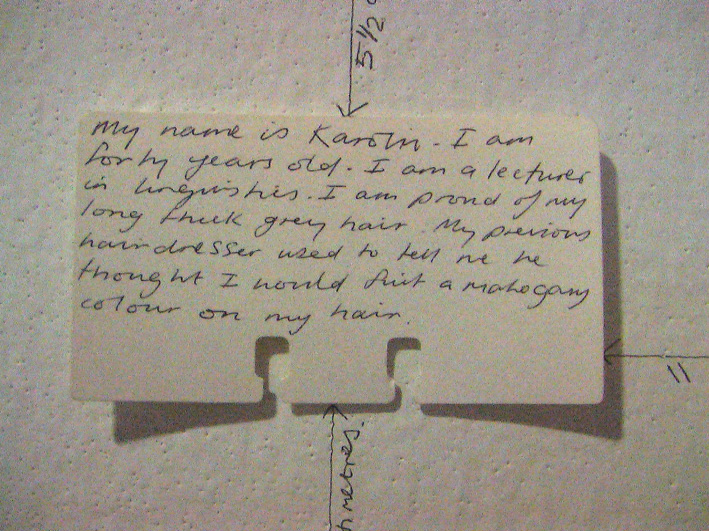 5 1/2 c
My name is Karolin. I am
forty years old. I am a lecturer
in linguistics. I am proud of my
long thick grey hair. My previous
hairdresser used to tell me he
thought I would suit a mahogany
colour on my hair.
11
timetres.